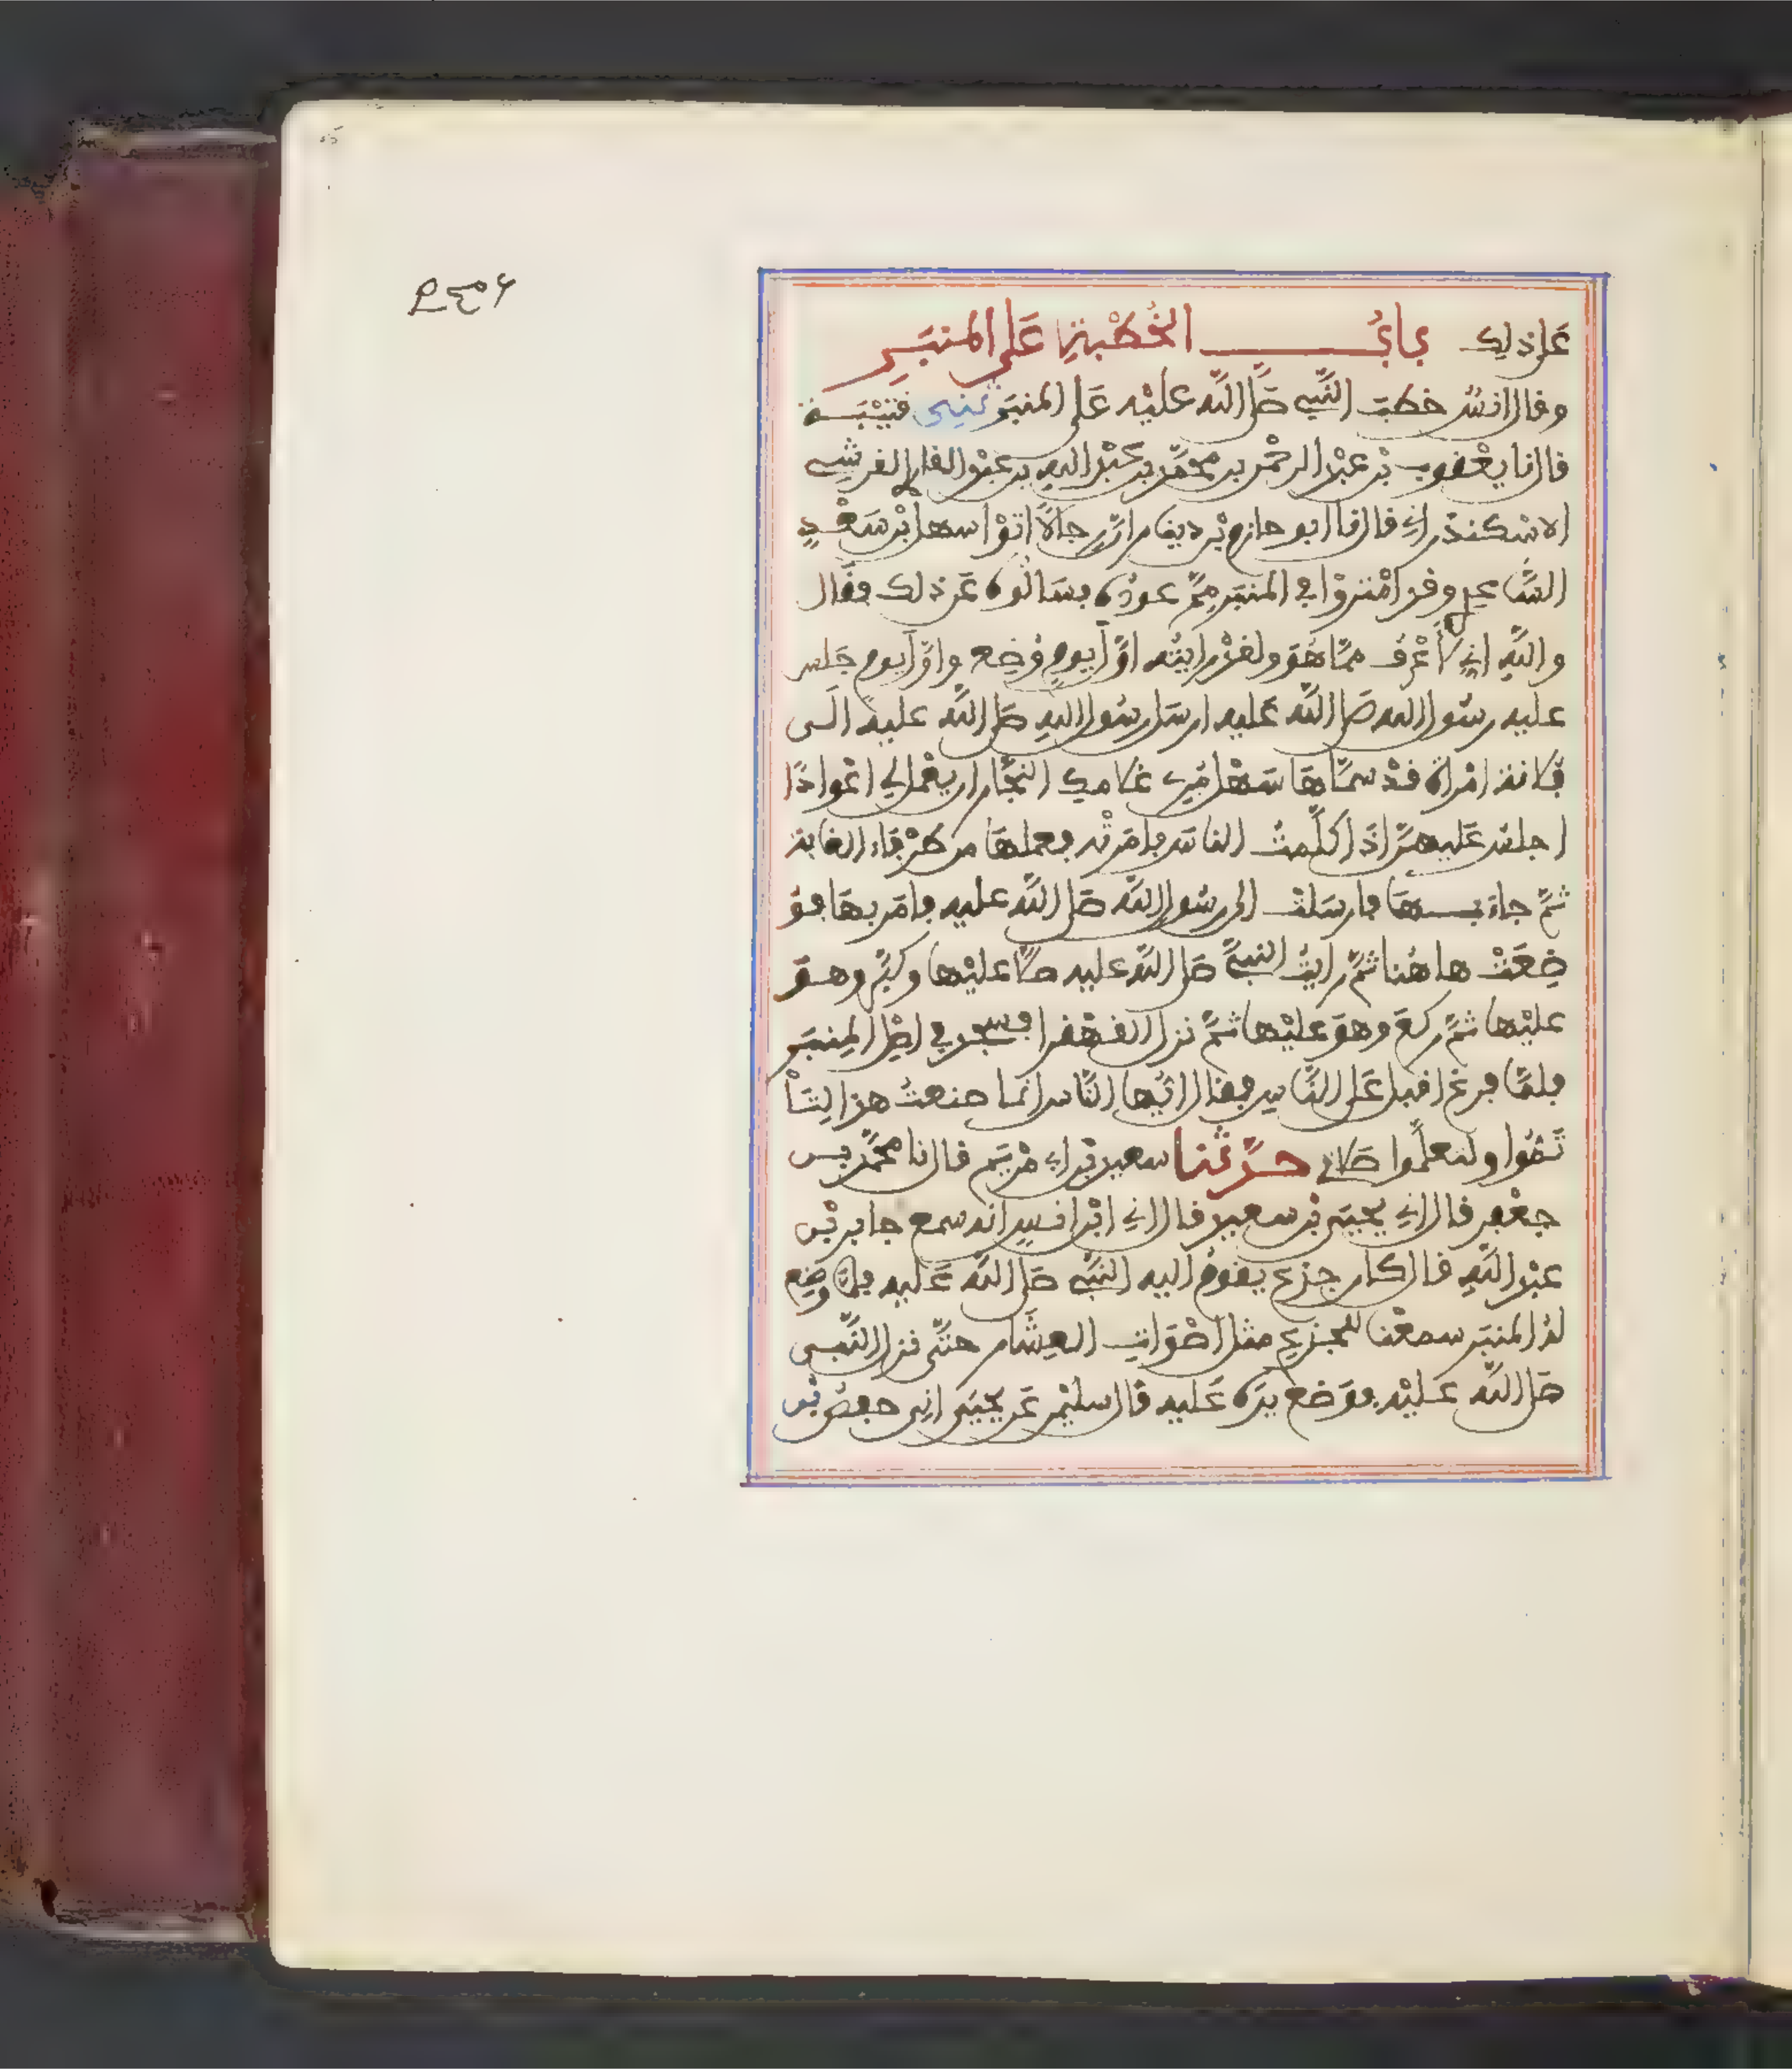 على ذلك باب الخطبة على المنبر
وقال انس خطب النبي صلى الله عليه على المنبر ثني قتيبة
قال نا يعقوب بن عبد الرحمن بن محمد بن عبد الله بن عبد القاري القرشي
الاسكندراني قال نا ابو حازم بن دينار ان رجالا اتوا سهل بن سعد
الساعدي وقد امتروا في المنبر مم عوده فسالوه عن ذلك فقال
والله اني لاعرف مما هو ولقد رايته اول يوم وضع واول يوم جلس
عليه رسول الله صلى الله عليه ارسل رسول الله صلى الله عليه الى
فلانة امراة قد سماها سهل مري غلامك النجار ان يعمل لي اعوادا
اجلس عليهن اذا كلمت الناس فامرته فعملها من طرفاء الغابة
ثم جاء بها فارسلت الى رسول الله صلى الله عليه فامر بها فو
ضعت هاهنا ثم رايت النبي صلى الله عليه صلا عليها وكبر وهو
عليها ثم ركع وهو عليها ثم نزل القهقرا فسجد في اصل المنبر
فلما فرغ اقبل على الناس فقال ايها الناس انما صنعت هذا لتا
تموا ولتعلموا صلاتي حدثنا سعيد بن ابي مريم قال نا محمد بن
جعفر قال اني يحيى بن سعيد قال اني ابن انس انه سمع جابر بن
عبد الله قال كان جذع يقوم اليه النبي صلى الله عليه فلما وضع
له المنبر سمعنا للجذع مثل اصوات العشار حتى نزل النبي
صلى الله عليه فوضع يده عليه قال سليمن عن يحيى اني حفص بن